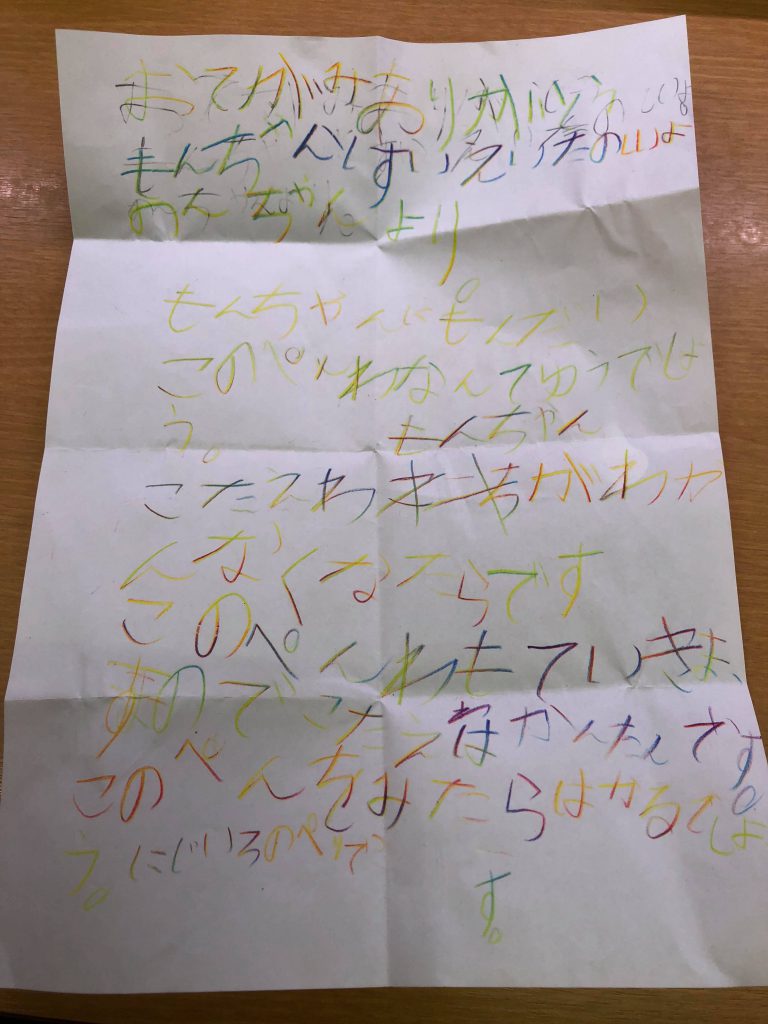 おてがみありがとう
もんちゃん
のんちゃんより。
もんちゃんにもんだい
このぺんわなんてゆうでしょ
う。 もんちゃん
こたえわ がわか
んなくなたらです
このぺんわもていきま
すのでこたえわかんたんです。
このぺんをみたらはかるでしょ
う。にじいろのぺんで
す。